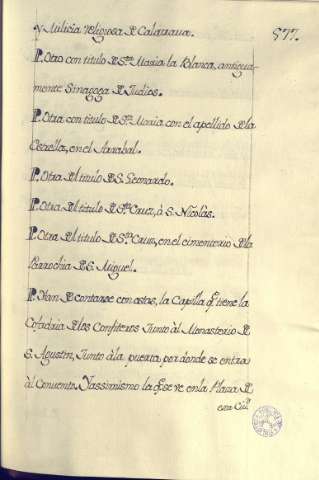 577.
y Milicia religiosa de Calatraua.
P. Otro con titulo de Sta. Maria la blanca, antigua-
mente Sinagoga de Judios.
P. Otra con titulo de Sta. Maria con el apellido de la
Estrella, en el Arrabal.
P. Otra del titulo de S. Leonardo.
P. Otra del titulo de Sta. Cruz, ò S. Nicolas.
P. Otra del titulo de Sta. Cruz, en el cimenterio de la
Parrochia de S. Miguel.
P. Han de contarse con estas, la Capilla q. tiene la
Cofadria de los Confiteros Junto àl Monasterio de
S. Agustin, Junto à la puerta por donde se entra
àl Conuento. Y assimismo la q. se ve en la Plaza de
esta Ciud.